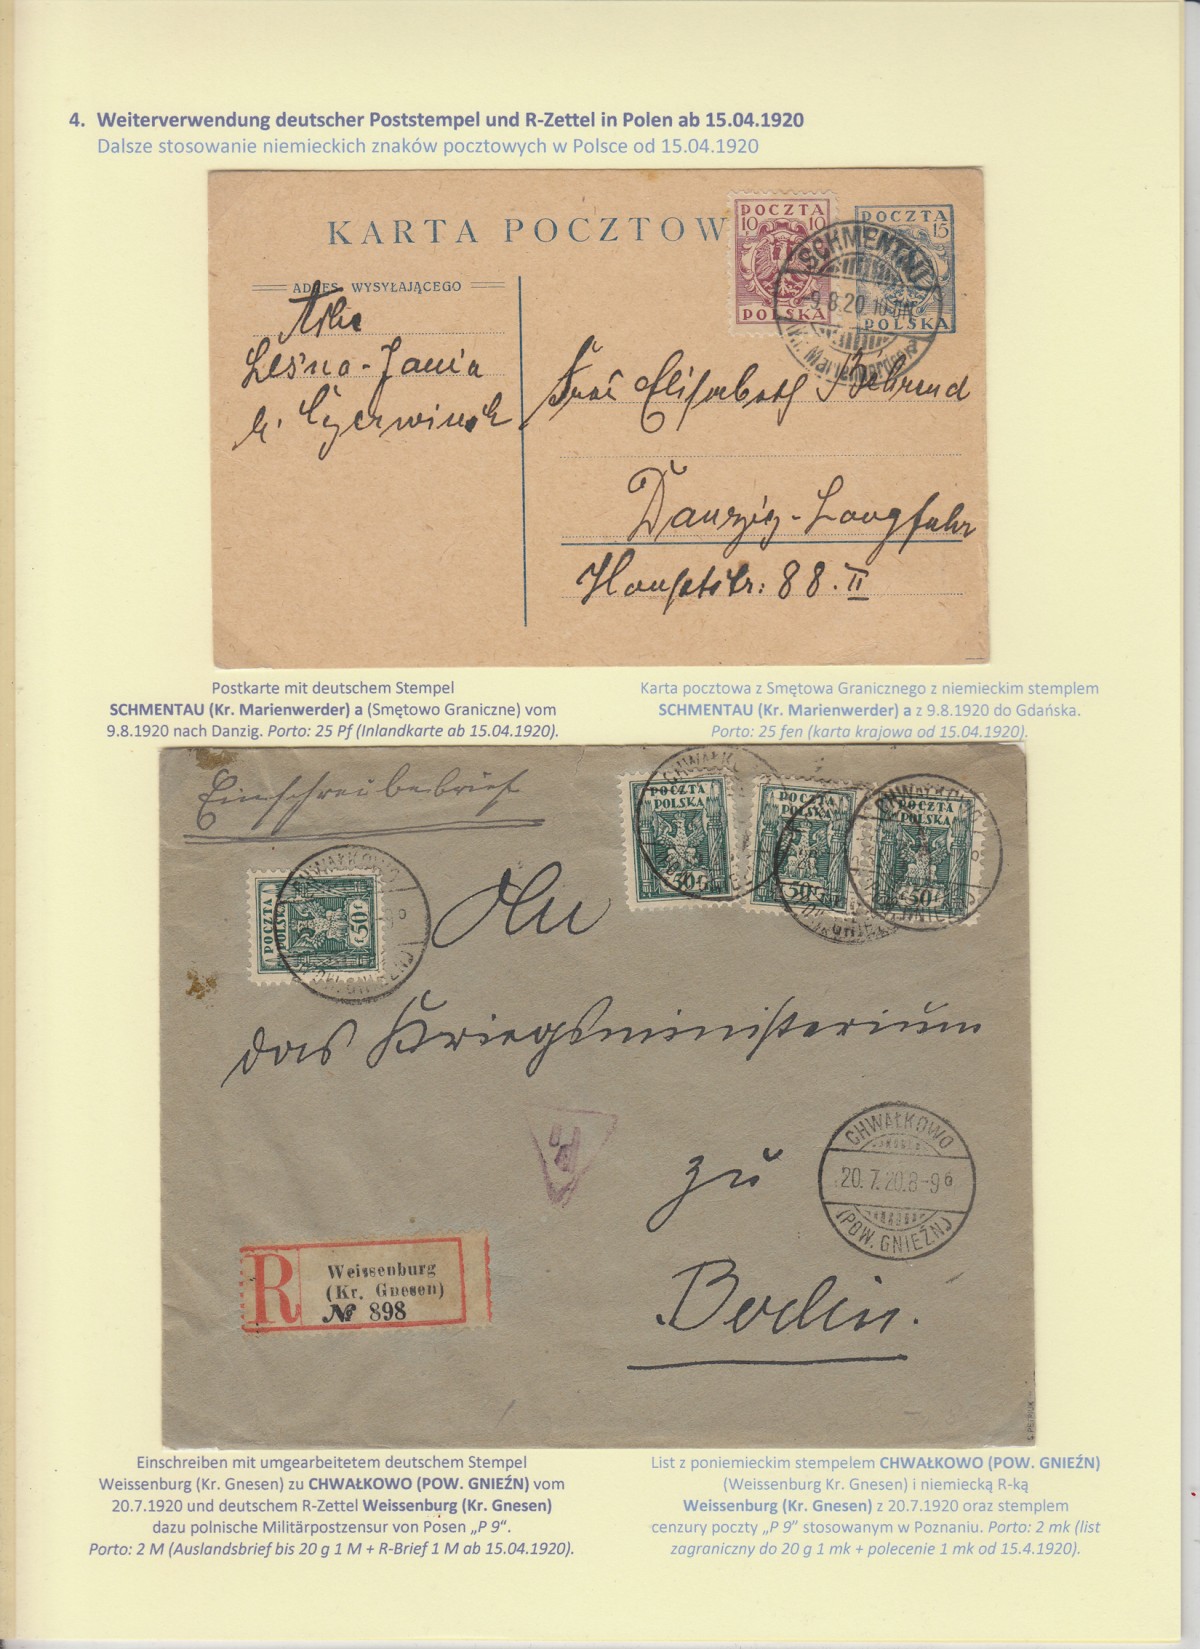 4. Weiterverwendung deutscher Poststempel und R-Zettel in Polen ab 15.04.1920
Dalsze stosowanie niemieckich znaków pocztowych w Polsce od 15.04.1920
KARTA POCZTOW
POCZTA
10 10
POLSKA
POCZTA
15
POLSKA
SCHMENTAU
-9.8.20.10-11V.
(Kr. Marienwerder) a
ADRES WYSYŁAJĄCEGO
Leśna-Jania
b. Czerwinsk
Frau Elisabeth Behrend
Danzig-Langfuhr
Hauptstr: 88. II
Postkarte mit deutschem Stempel
SCHMENTAU (Kr. Marienwerder) a (Smętowo Graniczne) vom
9.8.1920 nach Danzig. Porto: 25 Pf (Inlandkarte ab 15.04.1920).
Karta pocztowa z Smętowa Granicznego z niemieckim stemplem
SCHMENTAU (Kr. Marienwerder) a z 9.8.1920 do Gdańska.
Porto: 25 fen (karta krajowa od 15.04.1920).
Einschreibebrief
POCZTA POLSKA 50 F
POCZTA POLSKA 50 F
POCZTA POLSKA 50 F
POCZTA POLSKA 50 F
CHWAŁKOWO
An
das Kriegsministerium
zu
Berlin.
CHWAŁKOWO
20.7.20.8-9
(POW. GNIEŹN)
R
Weissenburg
(Kr. Gnesen)
№ 898
Einschreiben mit umgearbeitetem deutschem Stempel
Weissenburg (Kr. Gnesen) zu CHWAŁKOWO (POW. GNIEŹN) vom
20.7.1920 und deutschem R-Zettel Weissenburg (Kr. Gnesen)
dazu polnische Militärpostzensur von Posen „P 9“.
Porto: 2 M (Auslandsbrief bis 20 g 1 M + R-Brief 1 M ab 15.04.1920).
List z poniemieckim stempelem CHWAŁKOWO (POW. GNIEŹN)
(Weissenburg Kr. Gnesen) i niemiecką R-ką
Weissenburg (Kr. Gnesen) z 20.7.1920 oraz stemplem
cenzury poczty „P 9” stosowanym w Poznaniu. Porto: 2 mk (list
zagraniczny do 20 g 1 mk + polecenie 1 mk od 15.4.1920).